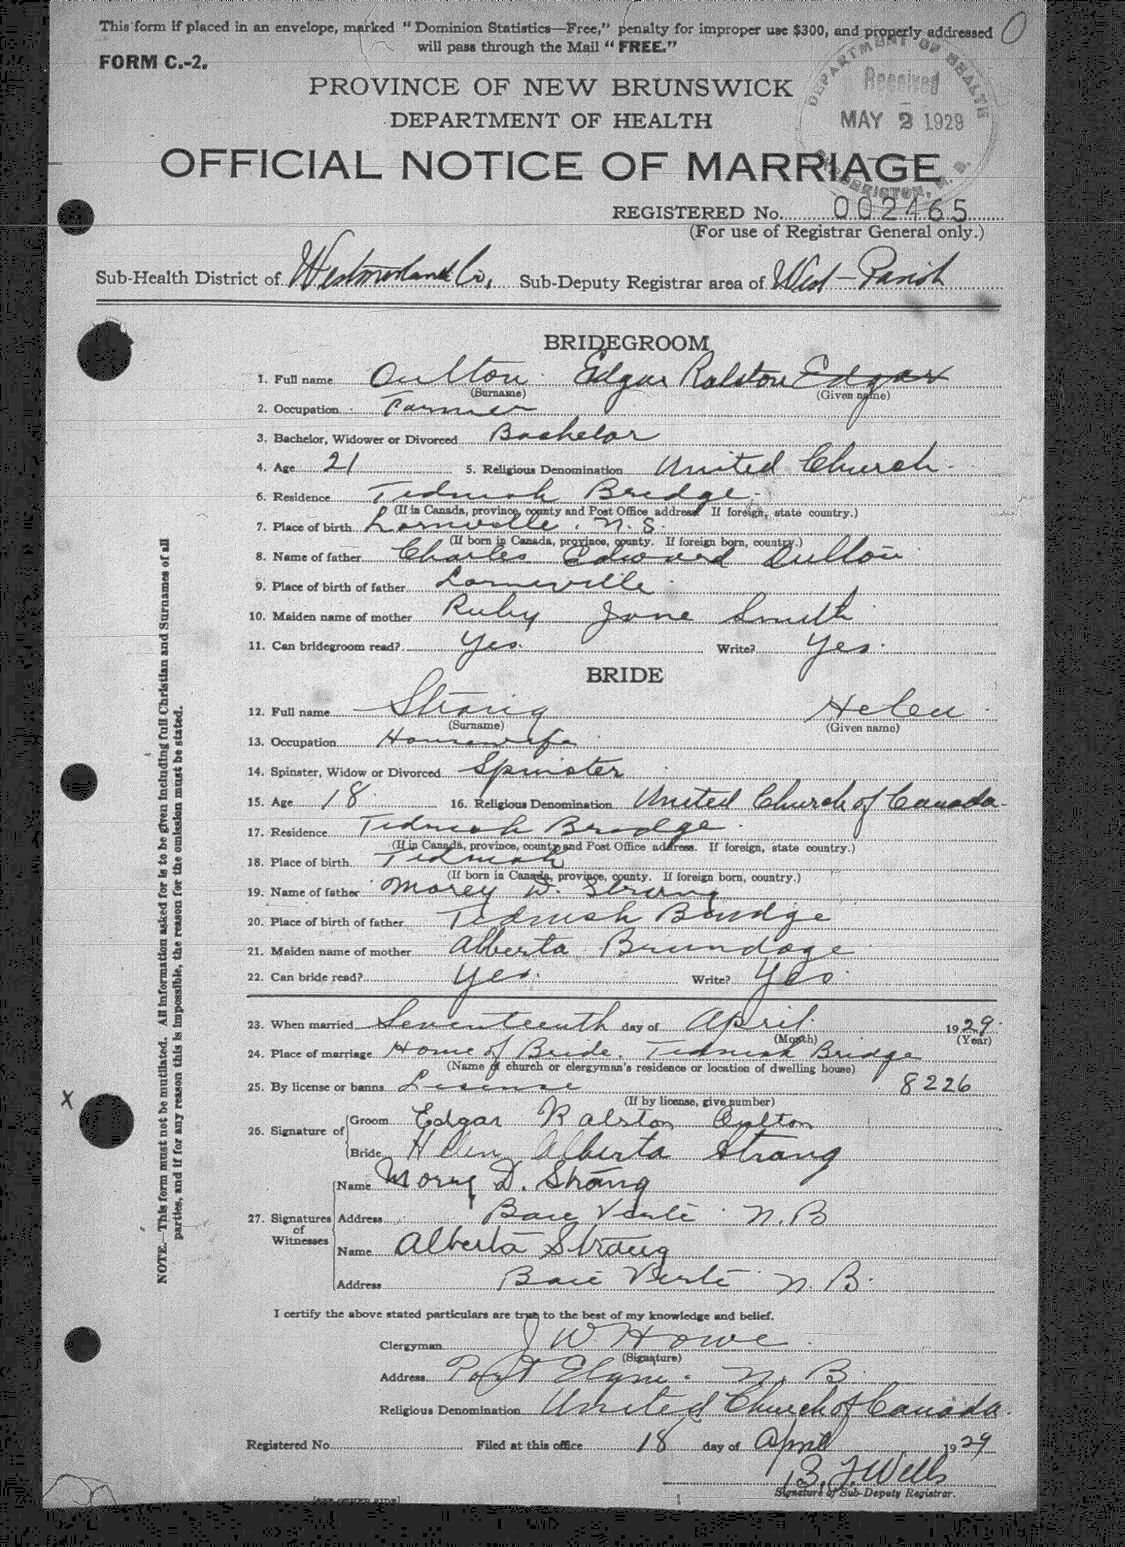 This form if placed in an envelope, marked "Dominion Statistics—Free," penalty for improper use $300, and properly addressed
will pass through the Mail "FREE."
FORM C.-2.
PROVINCE OF NEW BRUNSWICK
DEPARTMENT OF HEALTH
OFFICIAL NOTICE OF MARRIAGE
DEPARTMENT OF HEALTH
Received
MAY 2 1929
FREDERICTON, N. B.
REGISTERED No. 002465
(For use of Registrar General only.)
Sub-Health District of Westmorland Co, Sub-Deputy Registrar area of West-Parish
BRIDEGROOM
1. Full name Oulton Edgar Ralston Edgar
(Surname) (Given name)
2. Occupation Farmer
3. Bachelor, Widower or Divorced Bachelor
4. Age 21 5. Religious Denomination United Church
6. Residence Tidnish Bridge
(If in Canada, province, county and Post Office address. If foreign, state country.)
7. Place of birth Lorneville, N.S.
(If born in Canada, province, county. If foreign born, country.)
8. Name of father Charles Edward Oulton
9. Place of birth of father Lorneville
10. Maiden name of mother Ruby Jane Smith
11. Can bridegroom read? Yes. Write? Yes.
BRIDE
12. Full name Strang Helen
(Surname) (Given name)
13. Occupation Housewife
14. Spinster, Widow or Divorced Spinster
15. Age 18 16. Religious Denomination United Church of Canada
17. Residence Tidnish Bridge
(If in Canada, province, county and Post Office address. If foreign, state country.)
18. Place of birth Tidnish
(If born in Canada, province, county. If foreign born, country.)
19. Name of father Morey D. Strang
20. Place of birth of father Tidnish Bridge
21. Maiden name of mother Alberta Brundage
22. Can bride read? Yes. Write? Yes.
23. When married Seventeenth day of April 1929
(Month) (Year)
24. Place of marriage Home of Bride, Tidnish Bridge
(Name of church or clergyman's residence or location of dwelling house)
25. By license or banns Lisense 8226
(If by license, give number)
26. Signature of Groom Edgar Ralston Oulton
Bride Helen Alberta Strang
27. Signatures of Witnesses
Name Morey D. Strang
Address Baie Verte N.B
Name Alberta Strang
Address Baie Verte N.B.
I certify the above stated particulars are true to the best of my knowledge and belief.
Clergyman J W Howe
(Signature)
Address Port Elgin. N. B.
Religious Denomination United Church of Canada.
Registered No. Filed at this office 18 day of April 1929
B. J. Wells
Signature of Sub-Deputy Registrar.
NOTE.—This form must not be mutilated. All information asked for is to be given including full Christian and Surnames of all
parties, and if for any reason this is impossible, the reason for the omission must be stated.
X